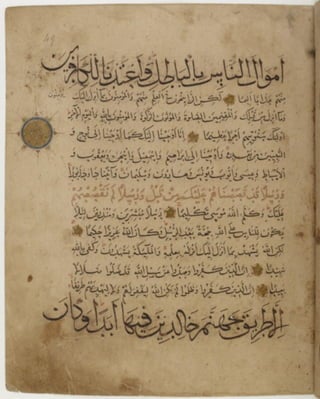 اموال الناس بالباطل واعتدنا للكافرين
منهم عذابا اليما لكن الراسخون في العلم منهم والمؤمنون يؤمنون بما انزل اليك
وما انزل من قبلك والمقيمين الصلوة والمؤتون الزكوة والمؤمنون بالله واليوم الاخر
اولئك سنؤتيهم اجرا عظيما انا اوحينا اليك كما اوحينا الى نوح و
النبيين من بعده واوحينا الى ابراهيم واسمعيل واسحق ويعقوب و
الاسباط وعيسى وايوب ويونس وهارون وسليمان واتينا داود زبورا
ورسلا قد قصصناهم عليك من قبل ورسلا لم نقصصهم
عليك وكلم الله موسى تكليما رسلا مبشرين ومنذرين لئلا
يكون للناس على الله حجة بعد الرسل وكان الله عزيزا حكيما
لكن الله يشهد بما انزل اليك انزله بعلمه والملئكة يشهدون وكفى بالله
شهيدا ان الذين كفروا وصدوا عن سبيل الله قد ضلوا ضلالا
بعيدا ان الذين كفروا وظلموا لم يكن الله ليغفر لهم ولا ليهديهم طريقا
الا طريق جهنم خالدين فيها ابدا وكان